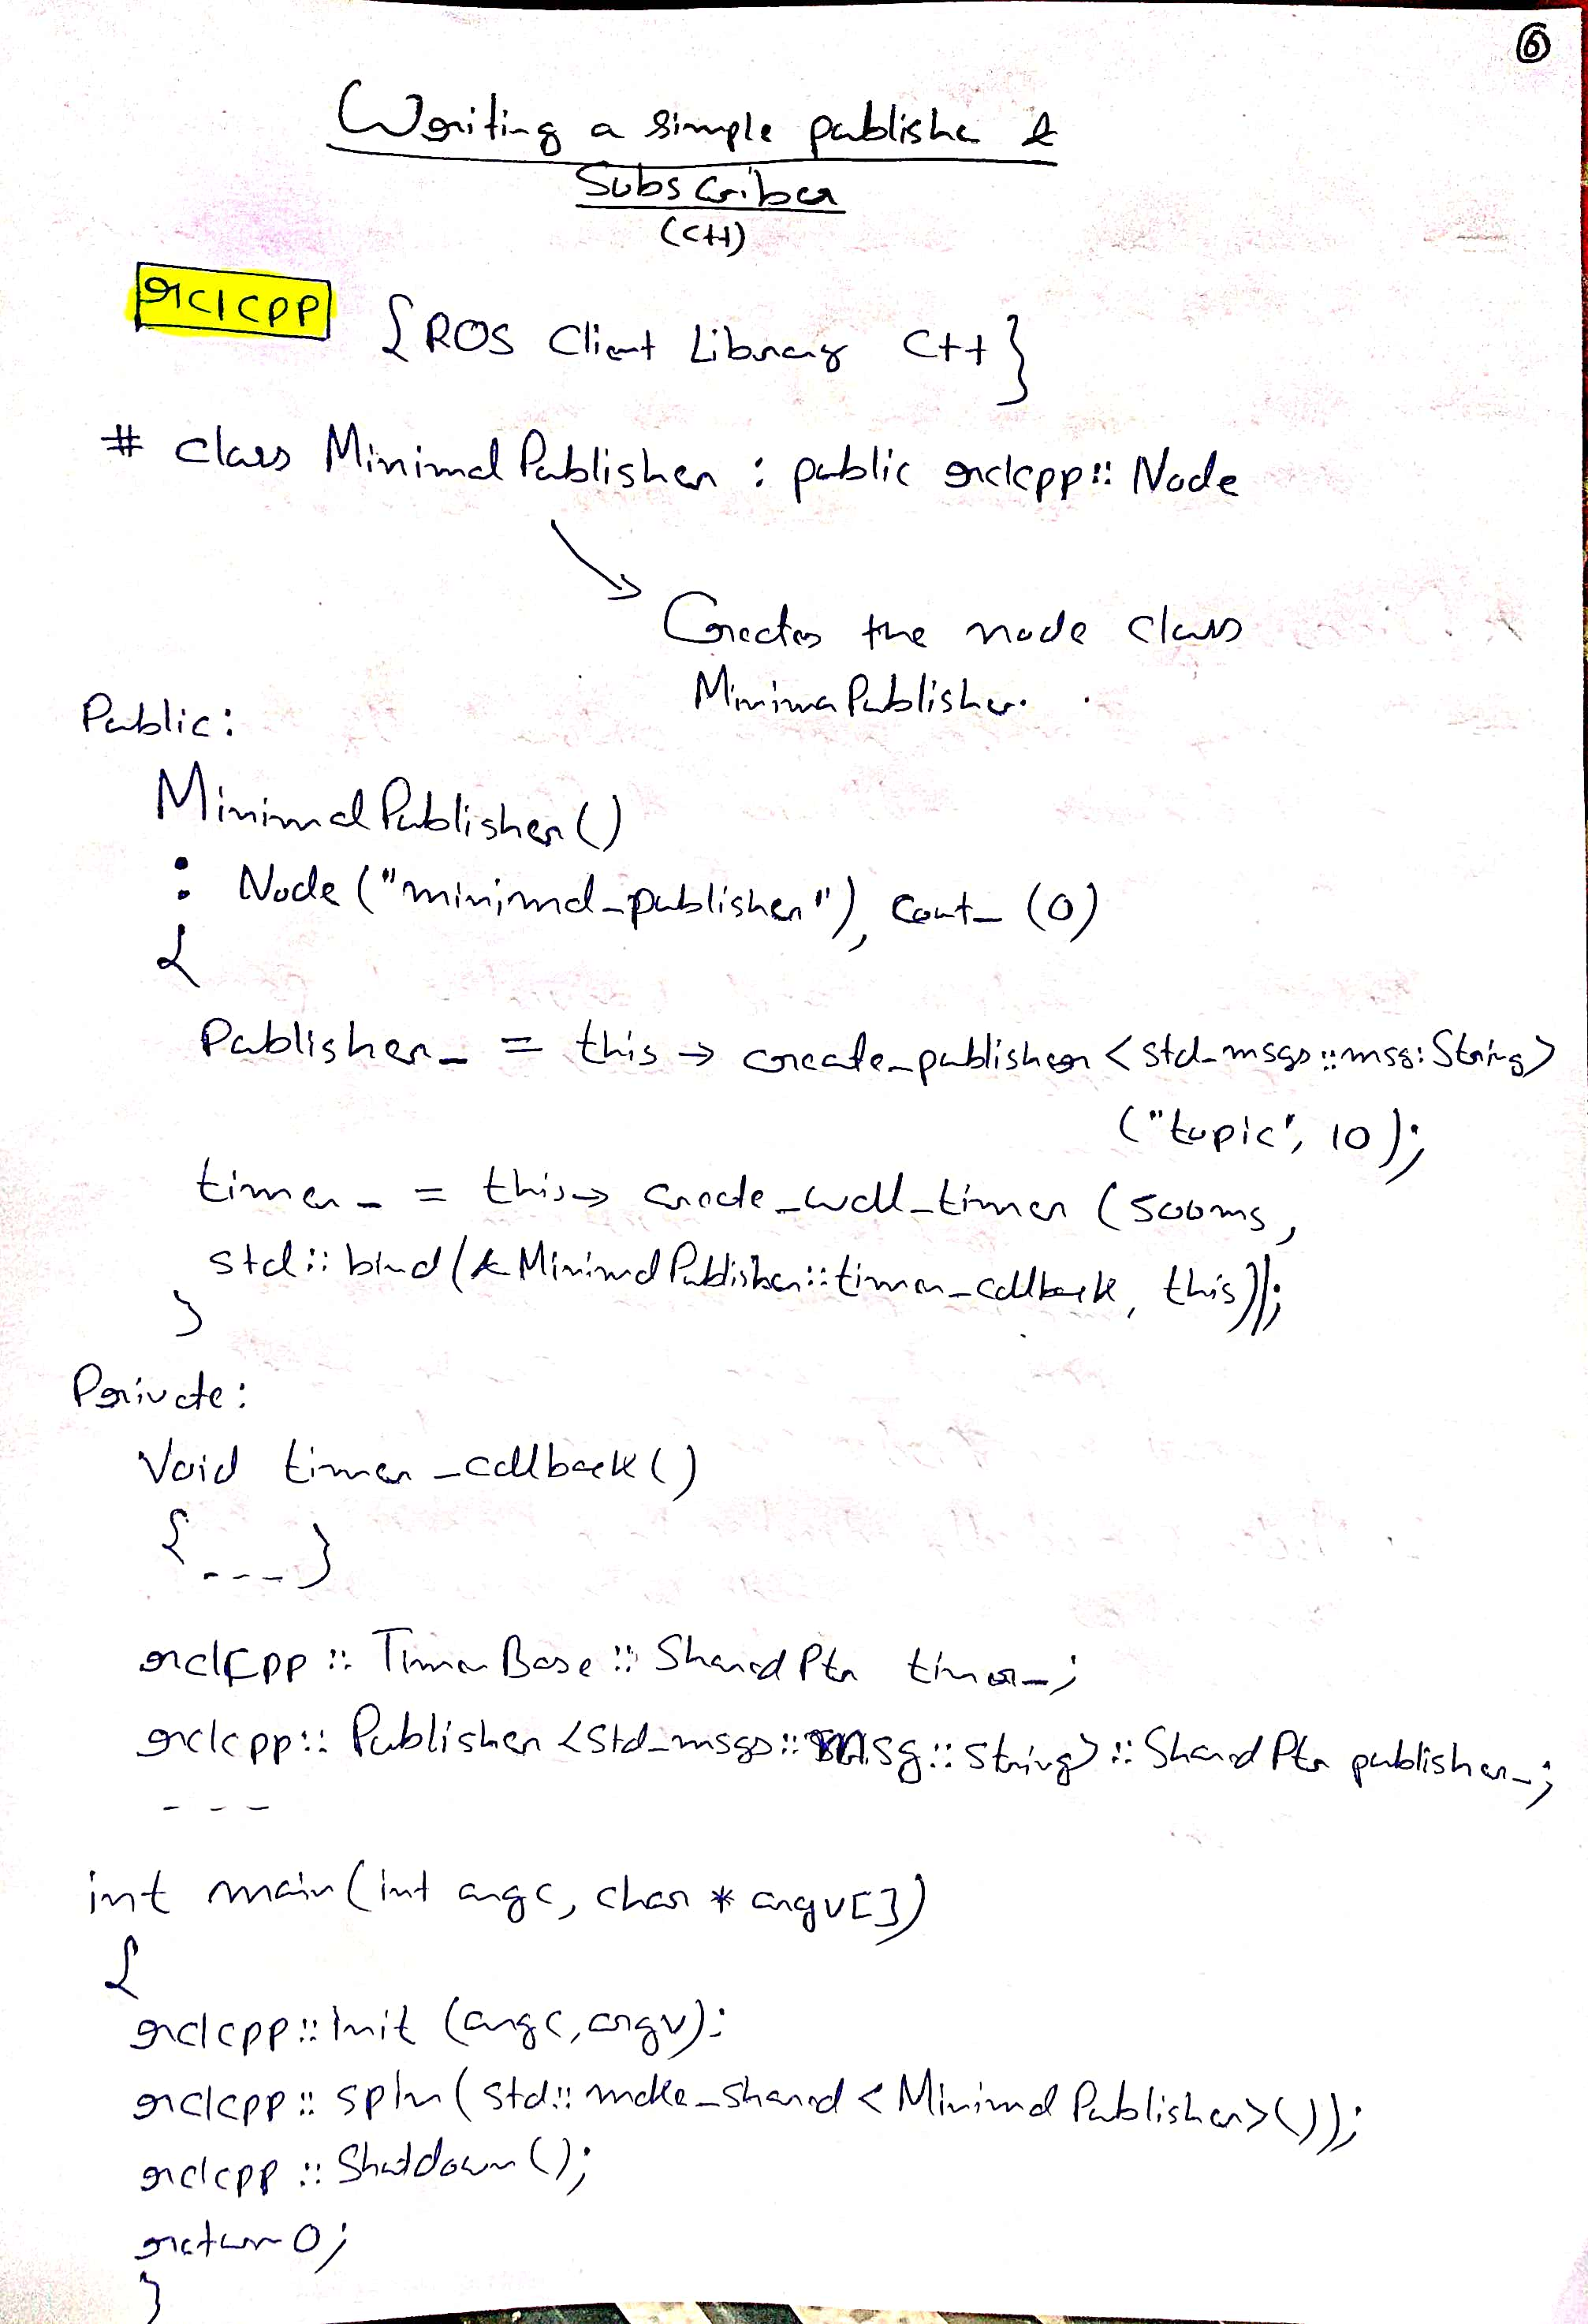 6
Writing a simple publishe &
Subscriber
(C++)
rclcpp {ROS Client Library C++}
# class MinimalPublisher : public rclcpp::Node
Creates the node class
MinimaPublisher.
Public:
MinimalPublisher()
: Node ("minimal_publisher"), count_ (0)
{
Publisher_ = this → create_publisher <std_msgs::msg:String>
("topic", 10);
timer_ = this → create_wall_timer (500ms,
std::bind(&MinimalPublisher::timer_callback, this));
}
Private:
Void timer_callback()
{---}
rclcpp :: TimerBase :: SharedPtr timer_;
rclcpp :: Publisher <std_msgs::msg::string> :: SharedPtr publisher_;
- - -
int main(int argc, char * argv[])
{
rclcpp::init (argc, argv);
rclcpp :: spin (std:: make_shared < MinimalPublisher>());
rclcpp :: Shutdown ();
return 0;
}